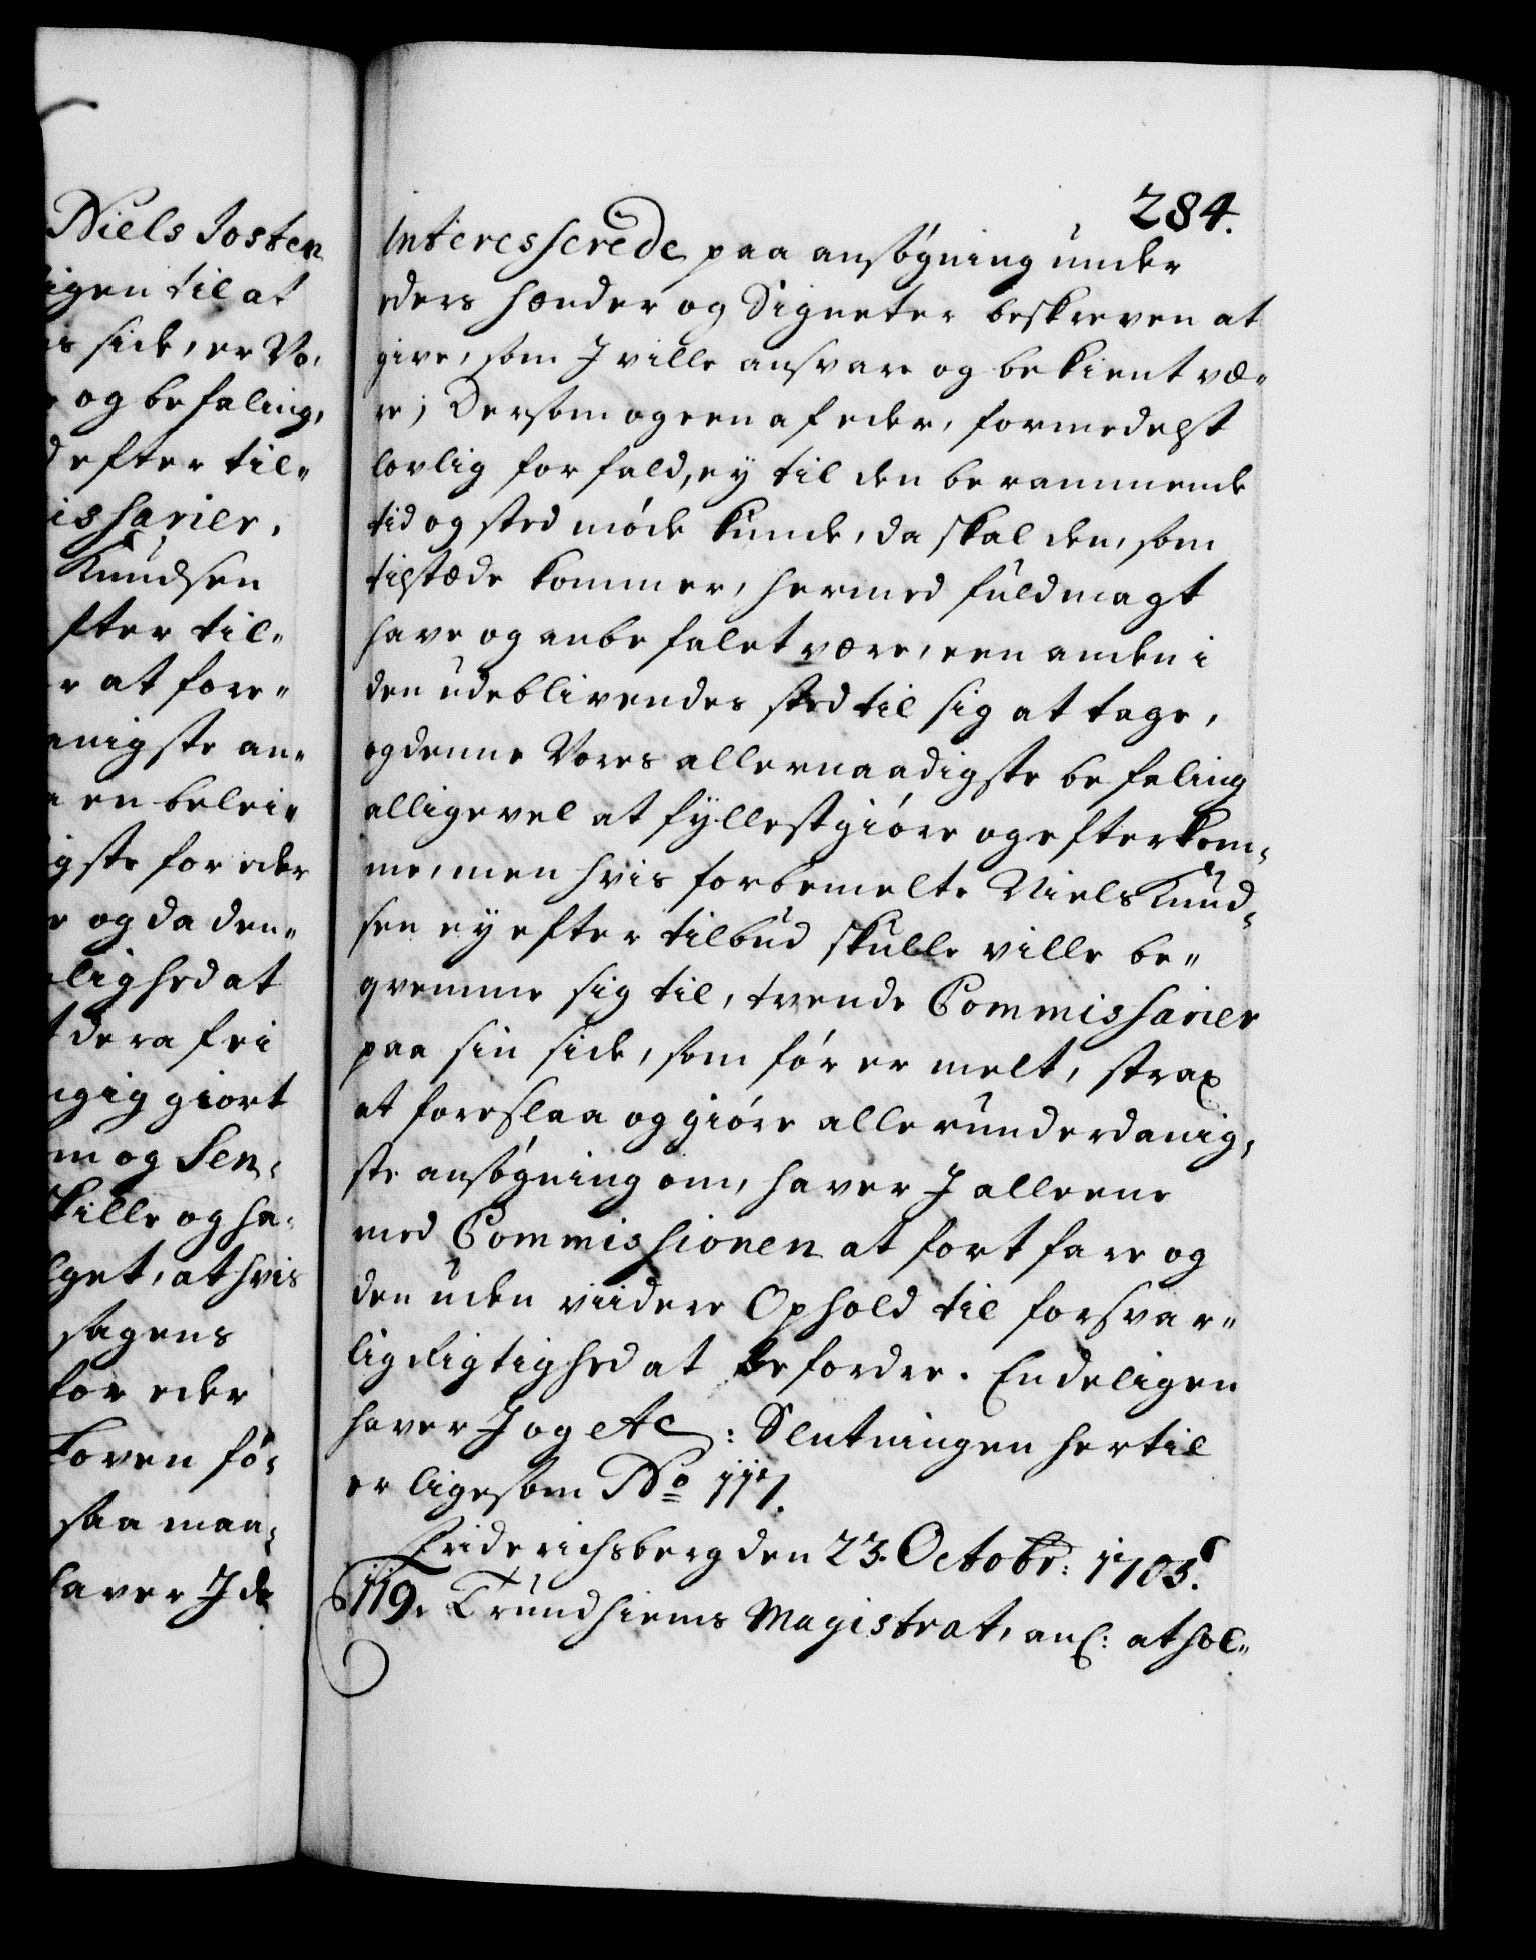 Niels Josten
igen til at
is side, er Vo,
og befaling,
d efter til„
issarier,
Knudsen
fter til„
r at fore„
anigste an„
en belei„
gste for eder
r og da den„
lighed at
dera fri
gig giort
m og Sen„
kille og ha„
lget, at hvis
sagens
for eder
Loven fø„
saa maa„
haver I de
284.
Interesserede paa ansøgning under
eders hænder og Signeter beskreven at
give, som I ville ansvare og bekient væ„
re; Dersom og een af eder, formedelst
lovlig forfald, ey til den berammende
tid og sted møde kunde, da skal den, som
tilstæde kommer, hermed fuldmagt
have og anbefalet være, een anden i
den udeblivendes sted til sig at tage,
og denne Vores allernaadigste befaling
alligevel at fyllestgiøre og efterkom„
me, men hvis forbemelte Niels Knud„
sen ey efter tilbud skulle ville be„
qvemme sig til, tvende Commissarier
paa sin side, som før er melt, strax
at foreslaa og giøre allerunderdanig„
ste ansøgning om, haver I alleene
med Commissionen at fortfare og
den uden viidere Ophold til forsvar„
lig Rigtighed at befordre. Endeligen
haver I og etc: Slutningen hertil
er ligesom No 117.
Friderichsberg den 23. Octobr: 1705.
119. Trundhiems Magistrat, anl: at hol„